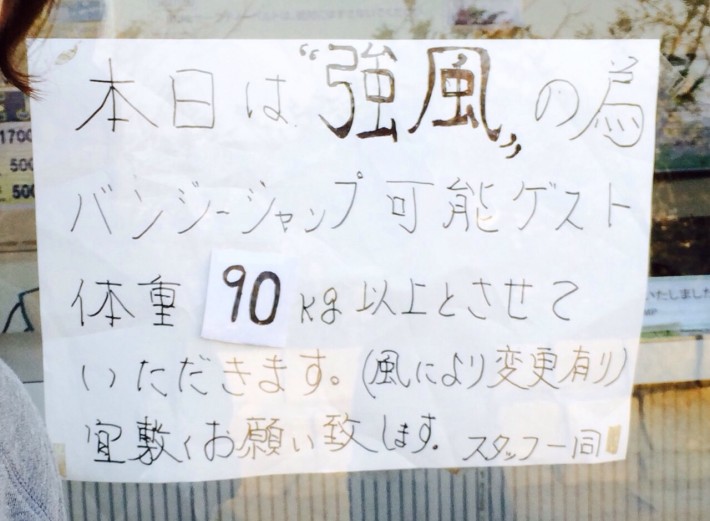 本日は“強風”の為
バンジージャップ可能ゲスト
体重 90 kg 以上とさせて
いただきます。(風により変更有り)
宜敷くお願い致します。 スタッフ一同
1700
500
500
いたしました